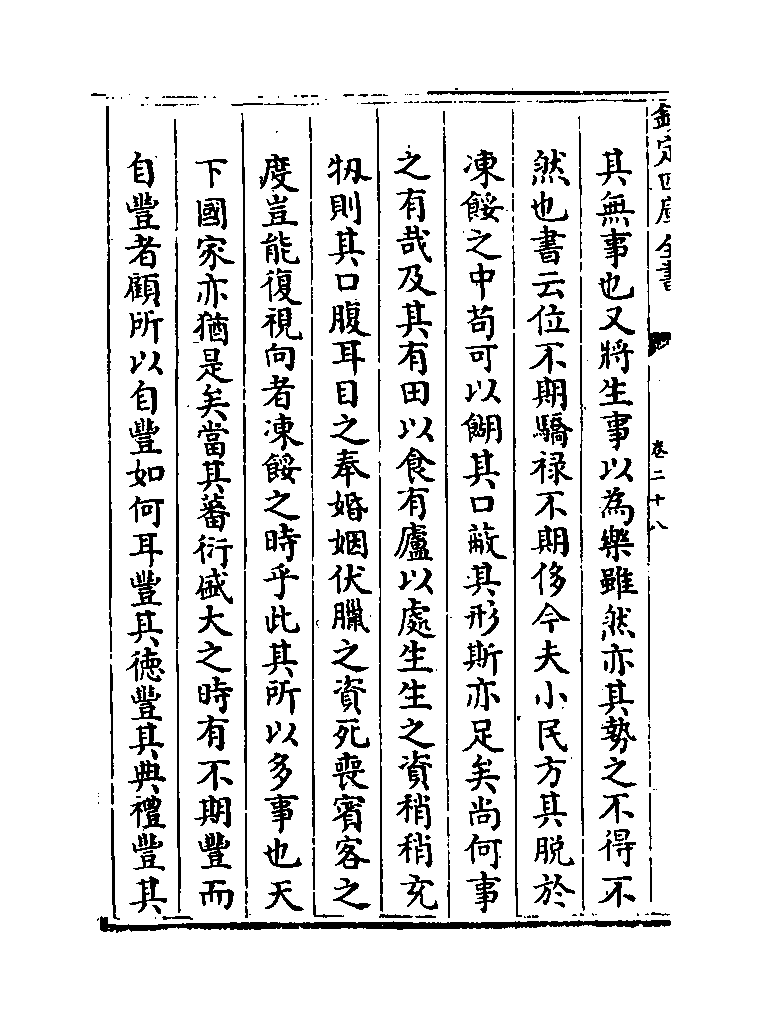 欽定四庫全書
卷二十八
其無事也又將生事以為樂雖然亦其勢之不得不
然也書云位不期驕禄不期侈今夫小民方其脱於
凍餒之中苟可以餬其口蔽其形斯亦足矣尚何事
之有哉及其有田以食有廬以處生生之資稍稍充
牣則其口腹耳目之奉婚姻伏臘之資死喪賓客之
度豈能復視向者凍餒之時乎此其所以多事也天
下國家亦猶是矣當其蕃衍盛大之時有不期豐而
自豐者顧所以自豐如何耳豐其徳豐其典禮豐其